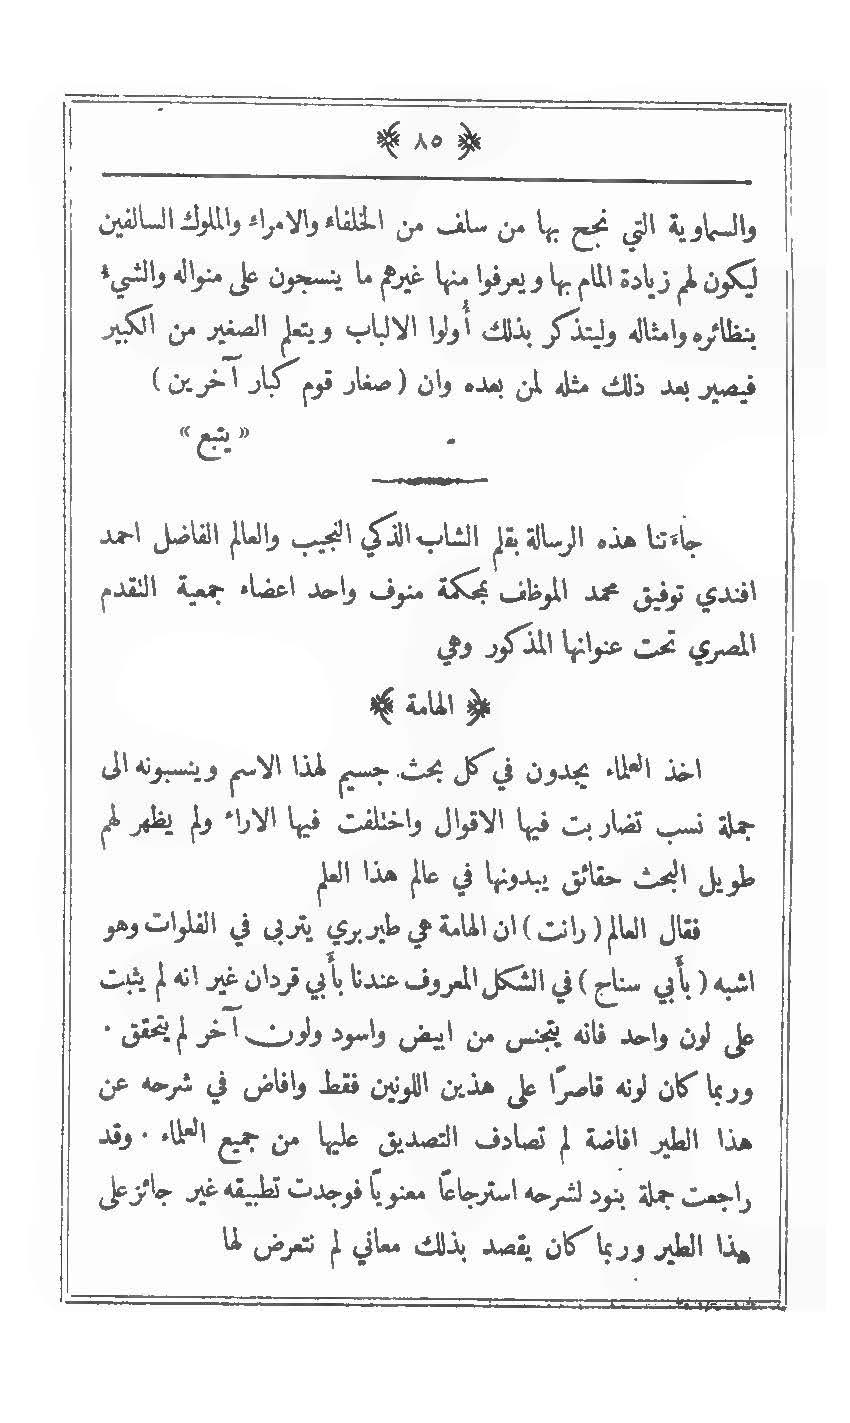 ﴿ ٨٥ ﴾
والسماوية التي نجح بها من سلف من الخلفاء والامراء والملوك السالفين
ليكون لهم زيادة المام بها ويعرفوا منها غيرهم ما ينسجون على منواله والشيء
بنظائره وامثاله وليتذكر بذلك أولوا الالباب ويتعلم الصغير من الكبير
فيصير بعد ذلك مثله لمن بعده وان ( صغار قوم كبار آخرين )
« يتبع »
جاءتنا هذه الرسالة بقلم الشاب الذكي النجيب والعالم الفاضل احمد
افندي توفيق محمد الموظف بمحكمة منوف واحد اعضاء جمعية التقدم
المصري تحت عنوانها المذكور وهي
﴿ الهامة ﴾
اخذ العلماء يجدون في كل بحث جسيم لهذا الاسم وينسبونه الى
جملة نسب تضاربت فيها الاقوال واختلفت فيها الاراء ولم يظهر لهم
طويل البحث حقائق يبدونها في عالم هذا العلم
فقال العالم ( رانت ) ان الهامة هي طير بري يتربى في الفلوات وهو
اشبه ( بأبي سناج ) في الشكل المعروف عندنا بأبي قردان غير انه لم يثبت
على لون واحد فانه يتجنس من ابيض واسود ولون آخر لم يتحقق ·
وربما كان لونه قاصرًا على هذين اللونين فقط وافاض في شرحه عن
هذا الطير افاضة لم تصادف التصديق عليها من جميع العلماء · وقد
راجعت جملة بنود لشرحه استرجاعًا معنويًا فوجدت تطبيقه غير جائز على
هذا الطير وربما كان يقصد بذلك معاني لم نتعرض لها